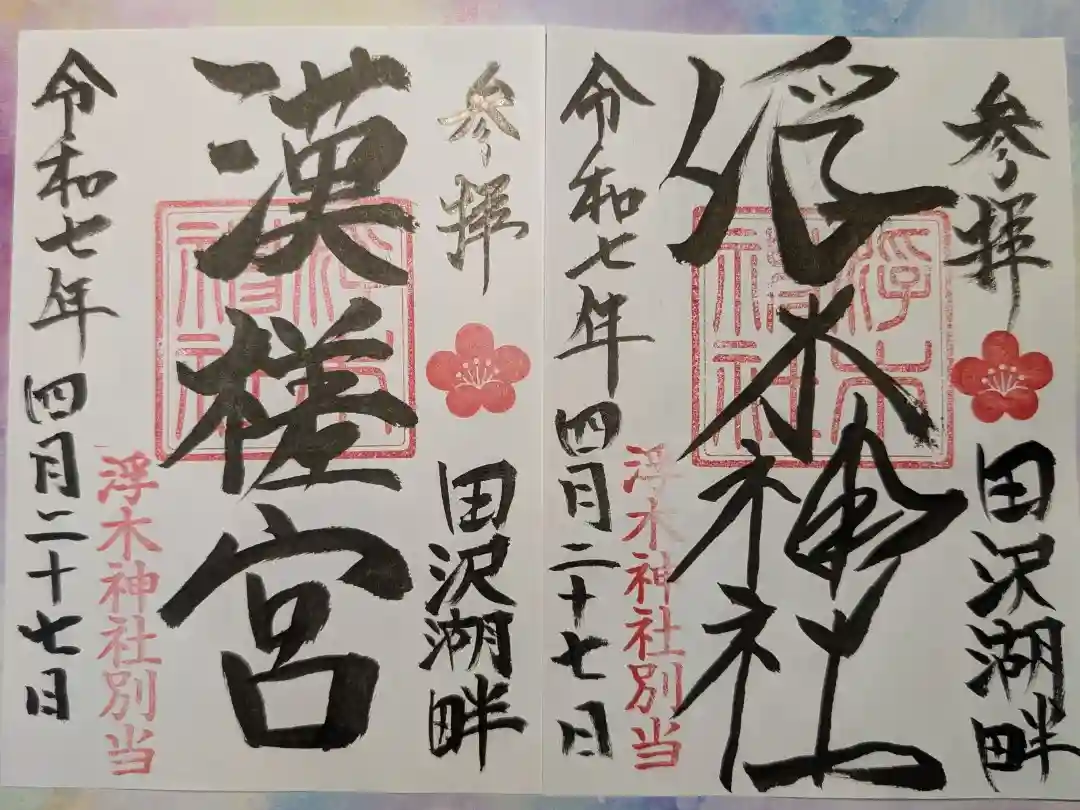 参拝
田沢湖畔
浮木神社
浮木神社
浮木神社別当
令和七年四月二十七日
参拝
田沢湖畔
漢槎宮
浮木神社
浮木神社別当
令和七年四月二十七日